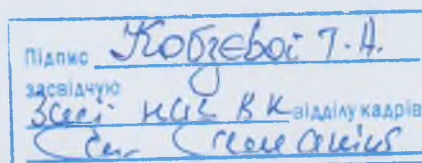 Підпис Кобзевої Т.А.
засвідчую
Заст нач ВК відділу кадрів